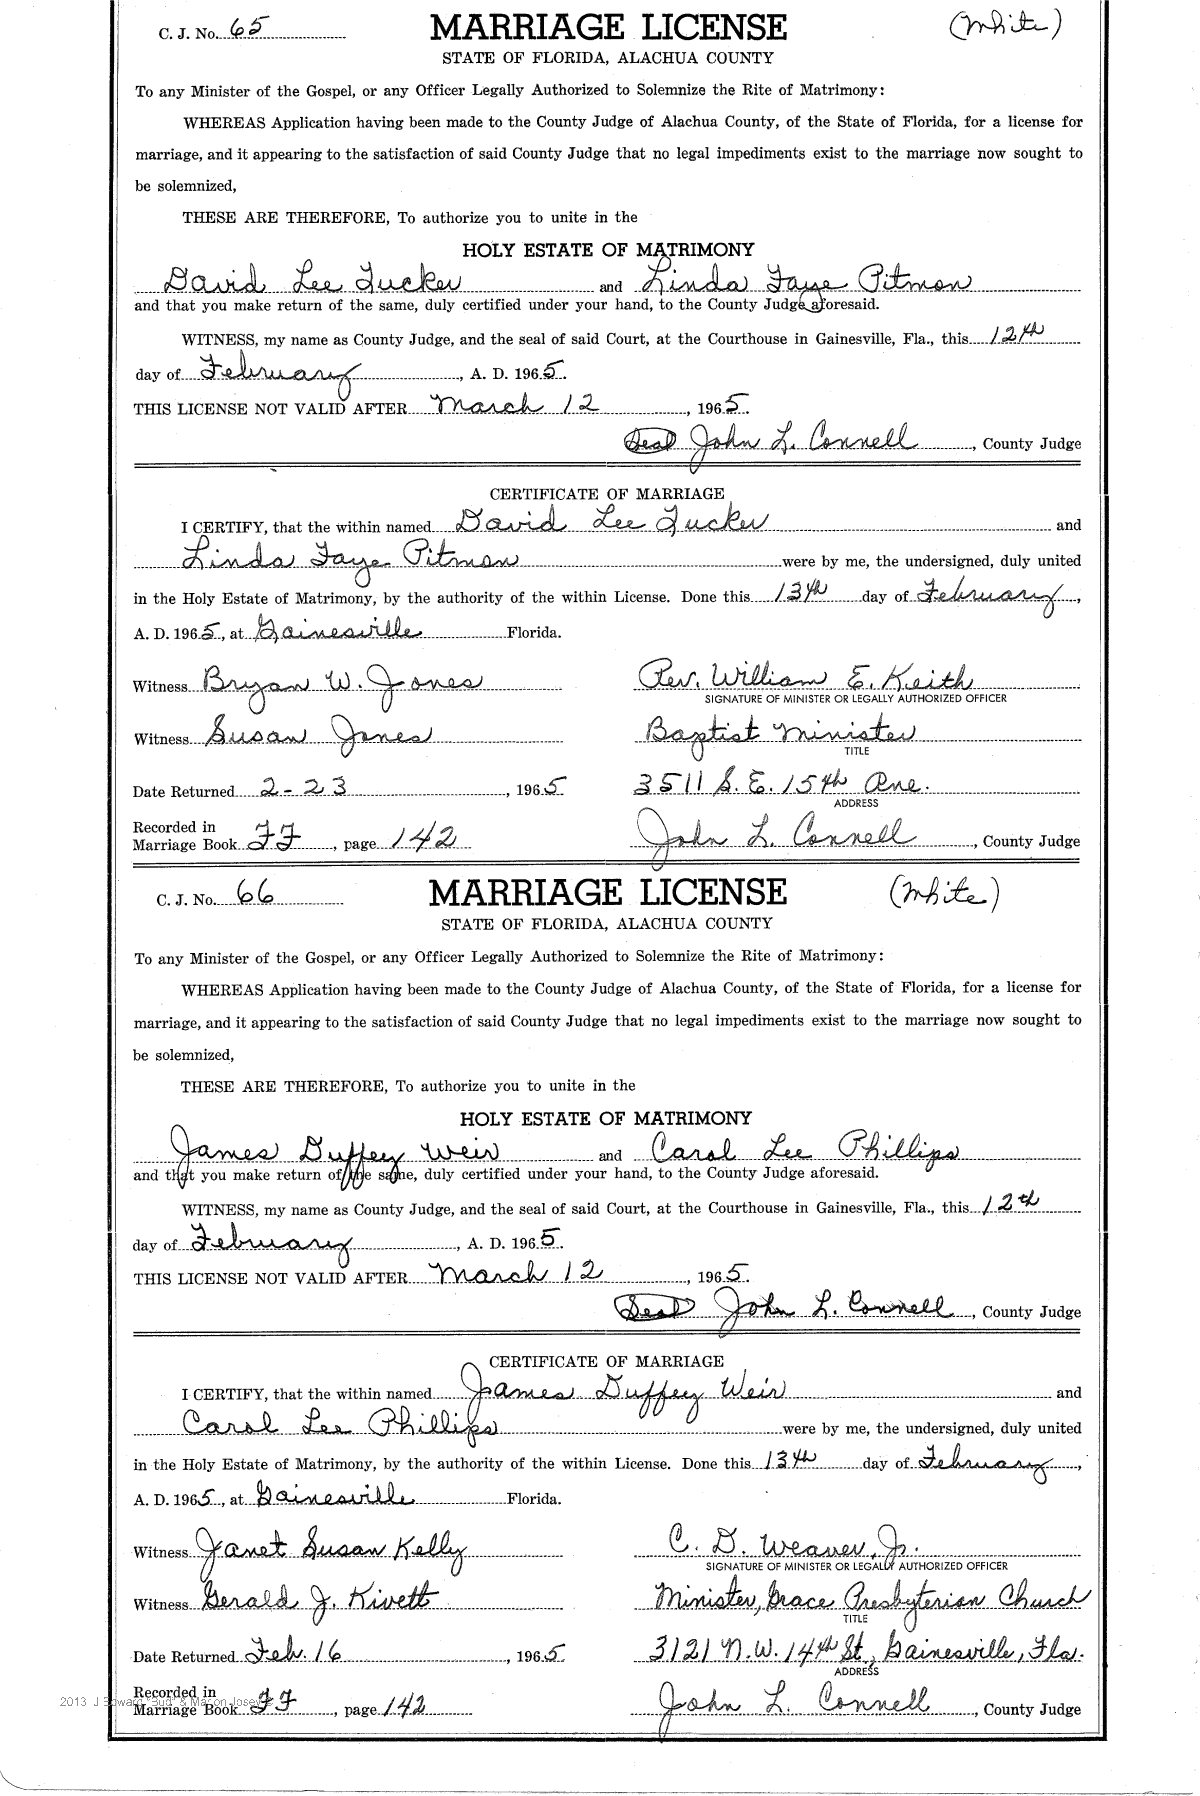 C. J. No. 65 MARRIAGE LICENSE (White)
STATE OF FLORIDA, ALACHUA COUNTY
To any Minister of the Gospel, or any Officer Legally Authorized to Solemnize the Rite of Matrimony:
WHEREAS Application having been made to the County Judge of Alachua County, of the State of Florida, for a license for
marriage, and it appearing to the satisfaction of said County Judge that no legal impediments exist to the marriage now sought to
be solemnized,
THESE ARE THEREFORE, To authorize you to unite in the
HOLY ESTATE OF MATRIMONY
David Lee Tucker and Linda Faye Pitman
and that you make return of the same, duly certified under your hand, to the County Judge aforesaid.
WITNESS, my name as County Judge, and the seal of said Court, at the Courthouse in Gainesville, Fla., this 12th
day of February, A. D. 1965.
THIS LICENSE NOT VALID AFTER March 12, 1965.
Seal John L. Connell, County Judge
CERTIFICATE OF MARRIAGE
I CERTIFY, that the within named David Lee Tucker and
Linda Faye Pitman were by me, the undersigned, duly united
in the Holy Estate of Matrimony, by the authority of the within License. Done this 13th day of February,
A. D. 1965, at Gainesville Florida.
Witness Bryan W. Jones Rev. William E. Keith
SIGNATURE OF MINISTER OR LEGALLY AUTHORIZED OFFICER
Witness Susan Jones Baptist Minister
TITLE
Date Returned 2-23, 1965 3511 S. E. 15th Ave.
ADDRESS
Recorded in
Marriage Book FF, page 142 John L. Connell, County Judge
C. J. No. 66 MARRIAGE LICENSE (White)
STATE OF FLORIDA, ALACHUA COUNTY
To any Minister of the Gospel, or any Officer Legally Authorized to Solemnize the Rite of Matrimony:
WHEREAS Application having been made to the County Judge of Alachua County, of the State of Florida, for a license for
marriage, and it appearing to the satisfaction of said County Judge that no legal impediments exist to the marriage now sought to
be solemnized,
THESE ARE THEREFORE, To authorize you to unite in the
HOLY ESTATE OF MATRIMONY
James Duffey Weir and Carol Lee Phillips
and that you make return of the same, duly certified under your hand, to the County Judge aforesaid.
WITNESS, my name as County Judge, and the seal of said Court, at the Courthouse in Gainesville, Fla., this 12th
day of February, A. D. 1965.
THIS LICENSE NOT VALID AFTER March 12, 1965.
Seal John L. Connell, County Judge
CERTIFICATE OF MARRIAGE
I CERTIFY, that the within named James Duffey Weir and
Carol Lee Phillips were by me, the undersigned, duly united
in the Holy Estate of Matrimony, by the authority of the within License. Done this 13th day of February,
A. D. 1965, at Gainesville Florida.
Witness Janet Susan Kelly C. D. Weaver, Jr.
SIGNATURE OF MINISTER OR LEGALLY AUTHORIZED OFFICER
Witness Gerald J. Kivett Minister, Grace Presbyterian Church
TITLE
Date Returned Feb. 16, 1965 3121 N.W. 14th St., Gainesville, Fla.
ADDRESS
Recorded in
2013 J Edward "Bud" & Marion Josey
Marriage Book FF, page 142 John L. Connell, County Judge